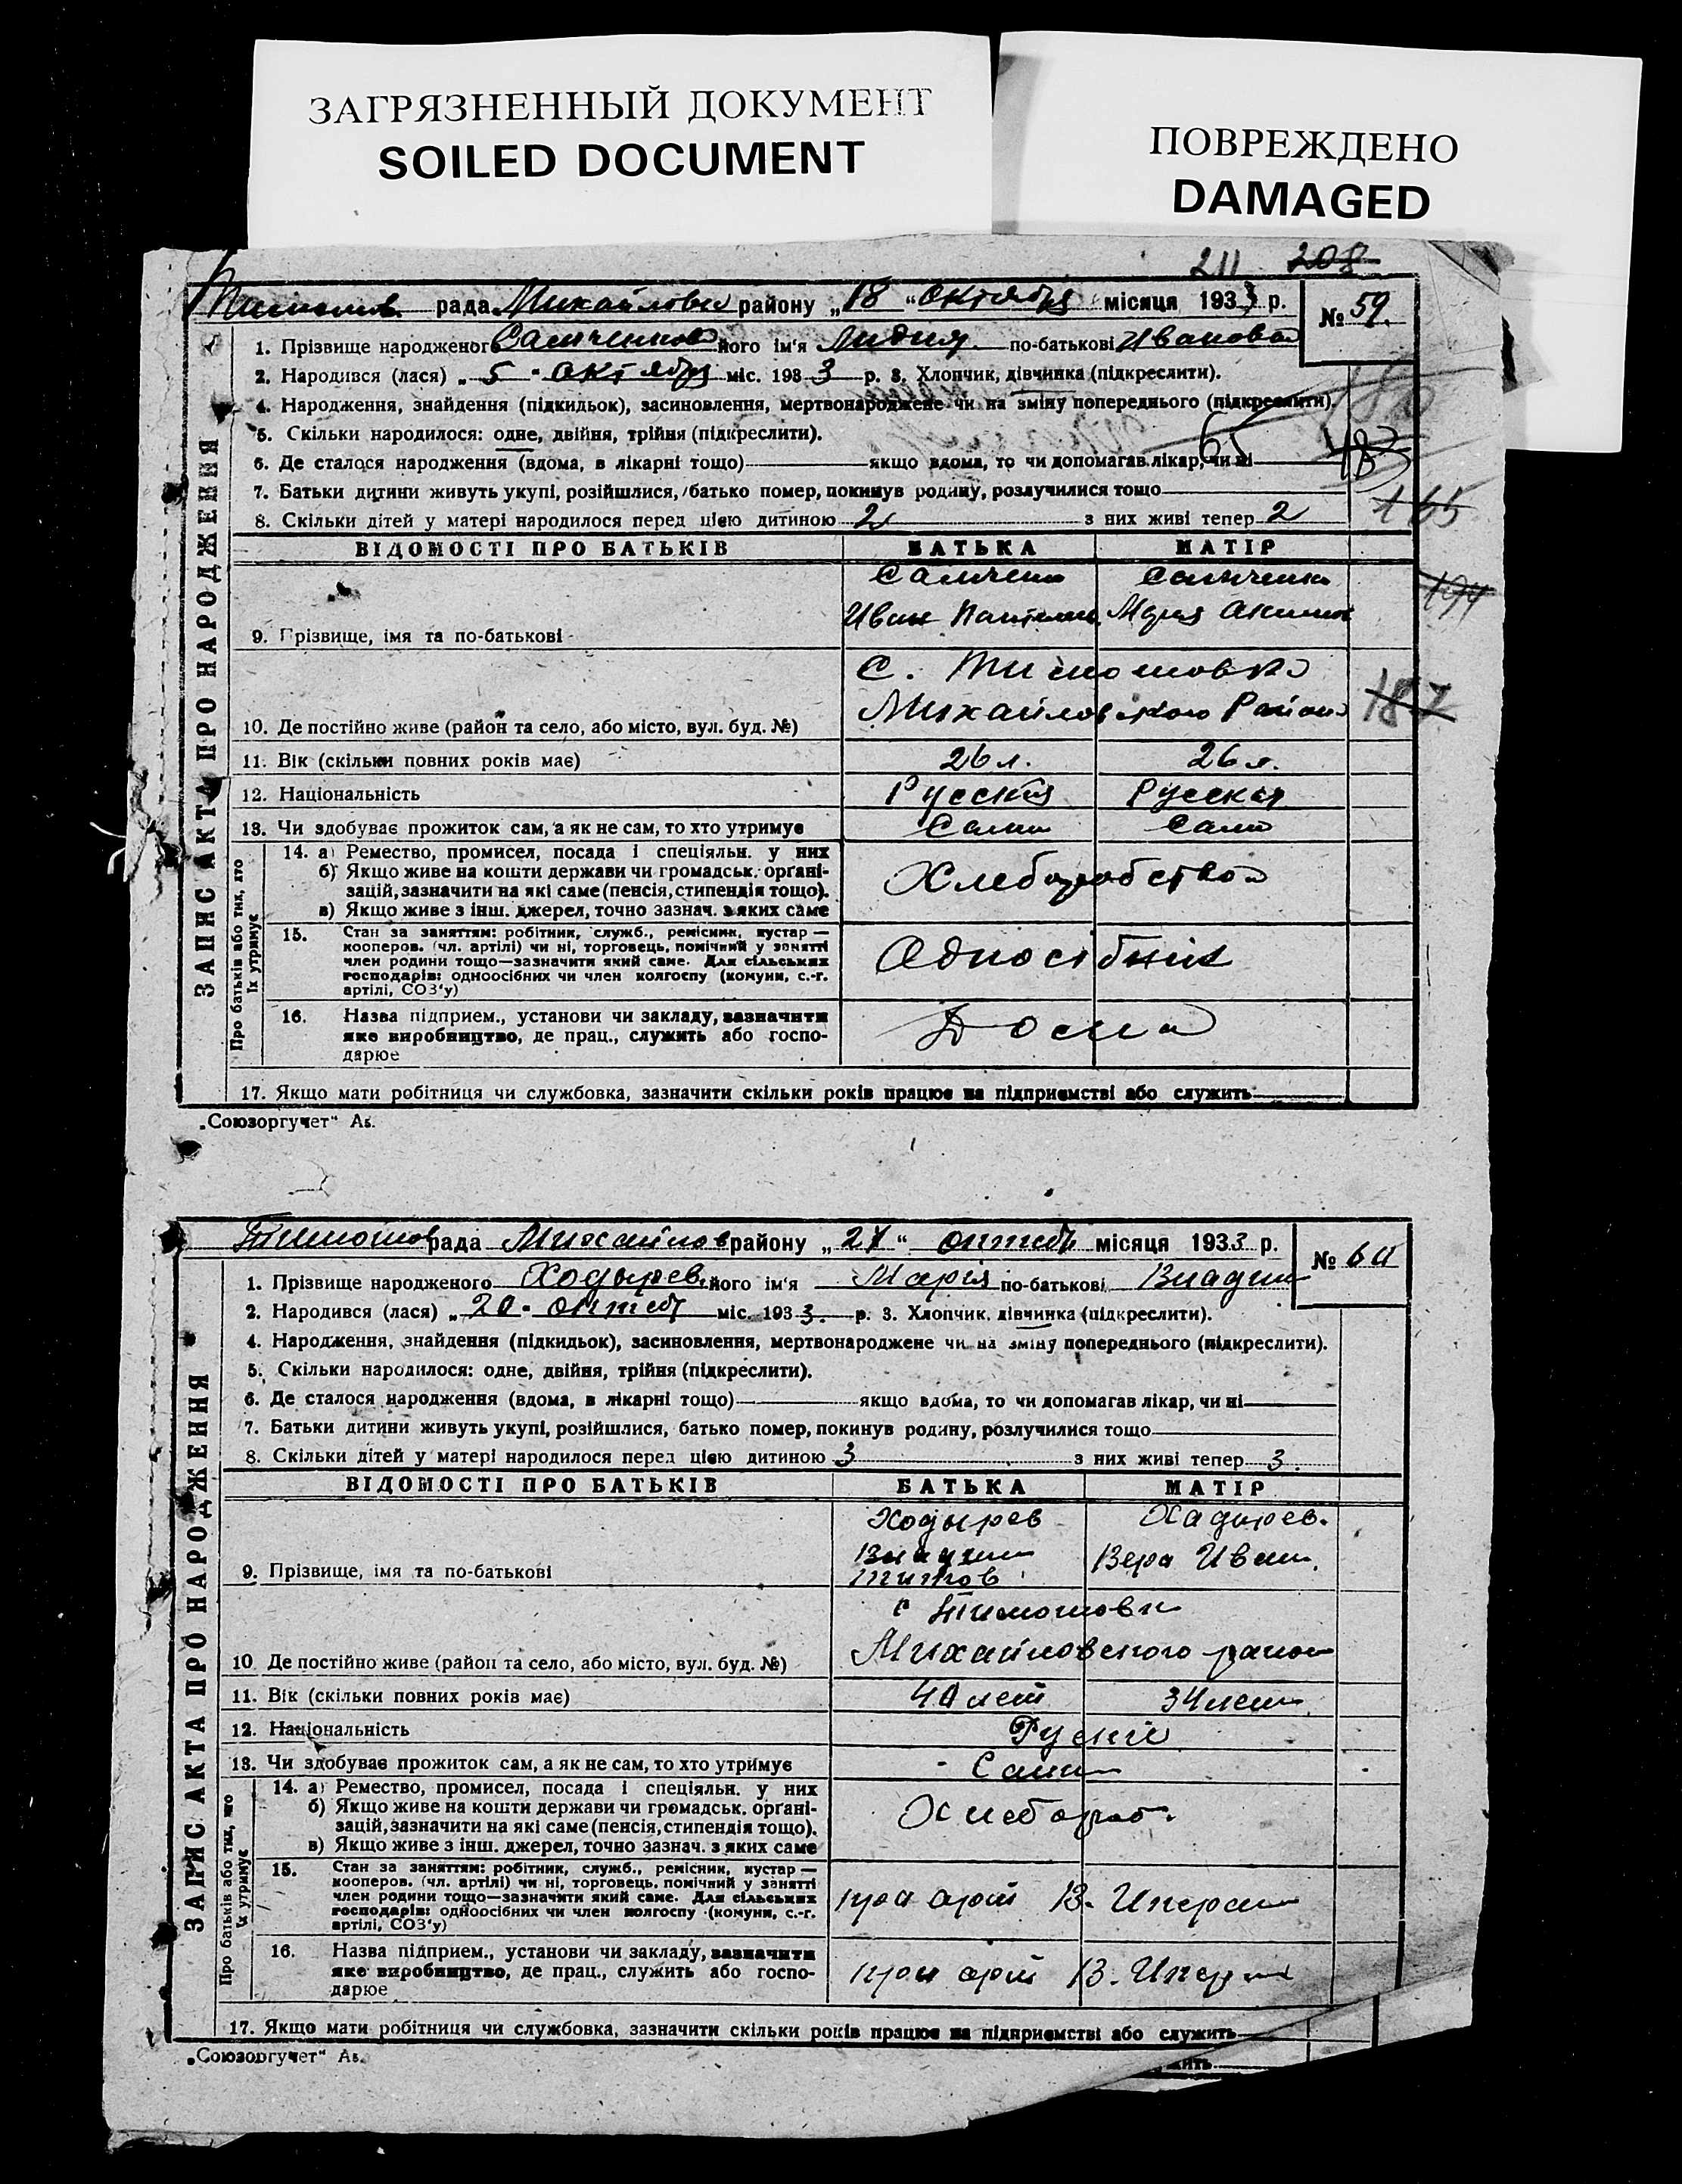 ЗАГРЯЗНЕННЫЙ ДОКУМЕНТ
SOILED DOCUMENT
ПОВРЕЖДЕНО
DAMAGED
211 208
рада Михайловск району „18 “ октября місяця 1933 р.
№ 59.
1. Прізвище народженого його ім'я Лидия по-батькові Иванова
2. Народився (лася) „ 5 “ октября міс. 1933 р. 3. Хлопчик, дівчинка (підкреслити).
4. Народження, знайдення (підкидьок), засиновлення, мертвонароджене чи на зміну попереднього (підкреслити).
5. Скільки народилося: одне, двійня, трійня (підкреслити).
6. Де сталося народження (вдома, в лікарні тощо) якщо вдома, то чи допомагав лікар, чи ні
183
7. Батьки дитини живуть укупі, розійшлися, батько помер, покинув родину, розлучилися тощо
165
8. Скільки дітей у матері народилося перед цією дитиною 2 з них живі тепер 2
ВІДОМОСТІ ПРО БАТЬКІВ БАТЬКА МАТІР
194
Иван
9. Прізвище, імя та по-батькові
с. Тимошовка
187
Михайловского Района
10. Де постійно живе (район та село, або місто, вул. буд. №)
11. Вік (скільки повних років має) 26 л. 26 л.
12. Національність Русский Русская
13. Чи здобуває прожиток сам, а як не сам, то хто утримує Сами Сами
14. а) Ремество, промисел, посада і спеціяльн. у них
б) Якщо живе на кошти держави чи громадськ. органі-
зацій, зазначити на які саме (пенсія, стипендія тощо).
в) Якщо живе з інш. джерел, точно зазнач. з яких саме
Хлеборобство
15. Стан за заняттям: робітник, служб., ремісник, кустар —
кооперов. (чл. артілі) чи ні, торговець, помічний у занятті
член родини тощо—зазначити який саме. Для сільських
господарів: одноосібних чи член колгоспу (комуни, с.-г.
артілі, СОЗ'у)
Односібник
16. Назва підприєм., установи чи закладу, зазначити
яке виробництво, де прац., служить або госпо-
дарює
Дома
17. Якщо мати робітниця чи службовка, зазначити скільки років працює на підприємстві або служить
ЗАПИС АКТА ПРО НАРОДЖЕННЯ
Про батьків або тих, хто
їх утримує
„Союзоргучет“ Аз.
Тимошов рада Михайлов району „27“ октяб місяця 1933 р.
№ 60
1. Прізвище народженого Ходырев його ім'я Марія по-батькові Владим
2. Народився (лася) „ 20 “ октяб міс. 1933. р. 3. Хлопчик, дівчинка (підкреслити).
4. Народження, знайдення (підкидьок), засиновлення, мертвонароджене чи на зміну попереднього (підкреслити).
5. Скільки народилося: одне, двійня, трійня (підкреслити).
6. Де сталося народження (вдома, в лікарні тощо) якщо вдома, то чи допомагав лікар, чи ні
7. Батьки дитини живуть укупі, розійшлися, батько помер, покинув родину, розлучилися тощо
8. Скільки дітей у матері народилося перед цією дитиною 3 з них живі тепер 3.
ВІДОМОСТІ ПРО БАТЬКІВ БАТЬКА МАТІР
Ходырев Хадырев.
Владим Вера Иван.
9. Прізвище, імя та по-батькові Титов
с Тимошовк
Михайловского район
10. Де постійно живе (район та село, або місто, вул. буд. №)
11. Вік (скільки повних років має) 40 лет 34 лет
12. Національність Рускіе
13. Чи здобуває прожиток сам, а як не сам, то хто утримує Сами
14. а) Ремество, промисел, посада і спеціяльн. у них
б) Якщо живе на кошти держави чи громадськ. органі-
зацій, зазначити на які саме (пенсія, стипендія тощо).
в) Якщо живе з інш. джерел, точно зазнач. з яких саме
Хлебороб.
15. Стан за заняттям: робітник, служб., ремісник, кустар —
кооперов. (чл. артілі) чи ні, торговець, помічний у занятті
член родини тощо—зазначити який саме. Для сільських
господарів: одноосібних чи член колгоспу (комуни, с.-г.
артілі, СОЗ'у)
арт
16. Назва підприєм., установи чи закладу, зазначити
яке виробництво, де прац., служить або госпо-
дарює
арт
17. Якщо мати робітниця чи службовка, зазначити скільки років працює на підприємстві або служить
ЗАПИС АКТА ПРО НАРОДЖЕННЯ
Про батьків або тих, хто
їх утримує
„Союзоргучет“ Аз.